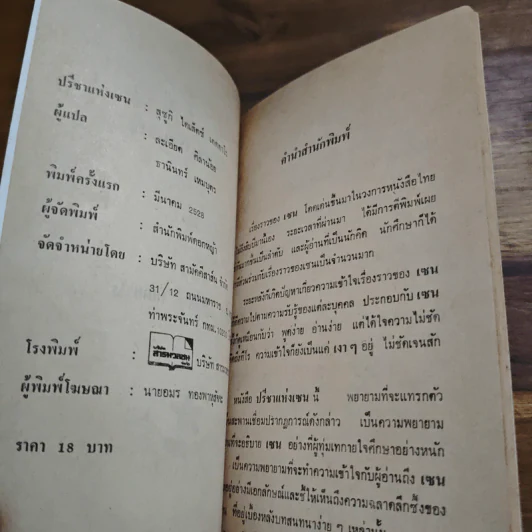 ปรีชาแห่งเซน : สุซูกิ ไดเส็ตซ์
ผู้แปล : ละเอียด ศิลาน้อย
ธานินทร์ เหมบุตร
พิมพ์ครั้งแรก : มีนาคม 2526
ผู้จัดพิมพ์ : สำนักพิมพ์ดอกหญ้า
จัดจำหน่ายโดย : บริษัท สามัคคีสาส์น จำกัด
31/12 ถนนมหาราช
ท่าพระจันทร์ กทม.
โรงพิมพ์ : บริษัท สารมวลชน จำกัด บริษัท
ผู้พิมพ์โฆษณา : นายอมร
ราคา 18 บาท
คำนำสำนักพิมพ์
เรื่องราวของ เซน โดดเด่นขึ้นมาในวงการหนังสือไทย
ระยะเวลาที่ผ่านมา ได้มีการตีพิมพ์เผย
และผู้อ่านที่เป็นนักคิด นักศึกษาก็ได้
กับเรื่องราวของเซนเป็นจำนวนมาก
ระยะหลังก็เกิดปัญหาเกี่ยวความเข้าใจเรื่องราวของ เซน
ความรับรู้ของแต่ละบุคคล ประกอบกับ เซน
เหมือนกับว่า พูดง่าย อ่านง่าย แต่ได้ใจความไม่ชัด
ความเข้าใจก็ยังเป็นแค่ เงา ๆ อยู่ ไม่ชัดเจนสัก
หนังสือ ปรีชาแห่งเซน นี้ พยายามที่จะแทรกตัว
สะพานเชื่อมปรากฏการณ์ดังกล่าว เป็นความพยายาม
ที่จะอธิบาย เซน อย่างที่ผู้ทุ่มเทกายใจศึกษาอย่างหนัก
เป็นความพยายามที่จะทำความเข้าใจกับผู้อ่านถึง เซน
อย่างมีเอกลักษณ์และชี้ให้เห็นถึงความฉลาดลึกซึ้งของ
ที่อยู่เบื้องหลังบทสนทนาง่าย ๆ เหล่านั้น